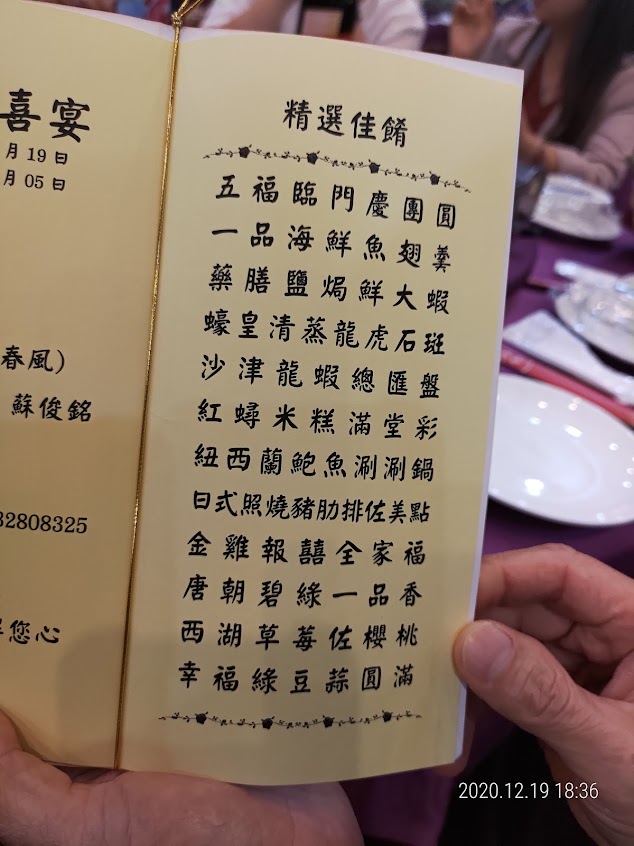 喜宴
月19日
月05日
春風)
蘇俊銘
32808325
您心
精選佳餚
五福臨門慶團圓
一品海鮮魚翅羹
藥膳鹽焗鮮大蝦
蠔皇清蒸龍虎石斑
沙津龍蝦總匯盤
紅蟳米糕滿堂彩
紐西蘭鮑魚涮涮鍋
日式照燒豬肋排佐美點
金雞報囍全家福
唐朝碧綠一品香
西湖草莓佐櫻桃
幸福綠豆蒜圓滿
2020.12.19 18:36